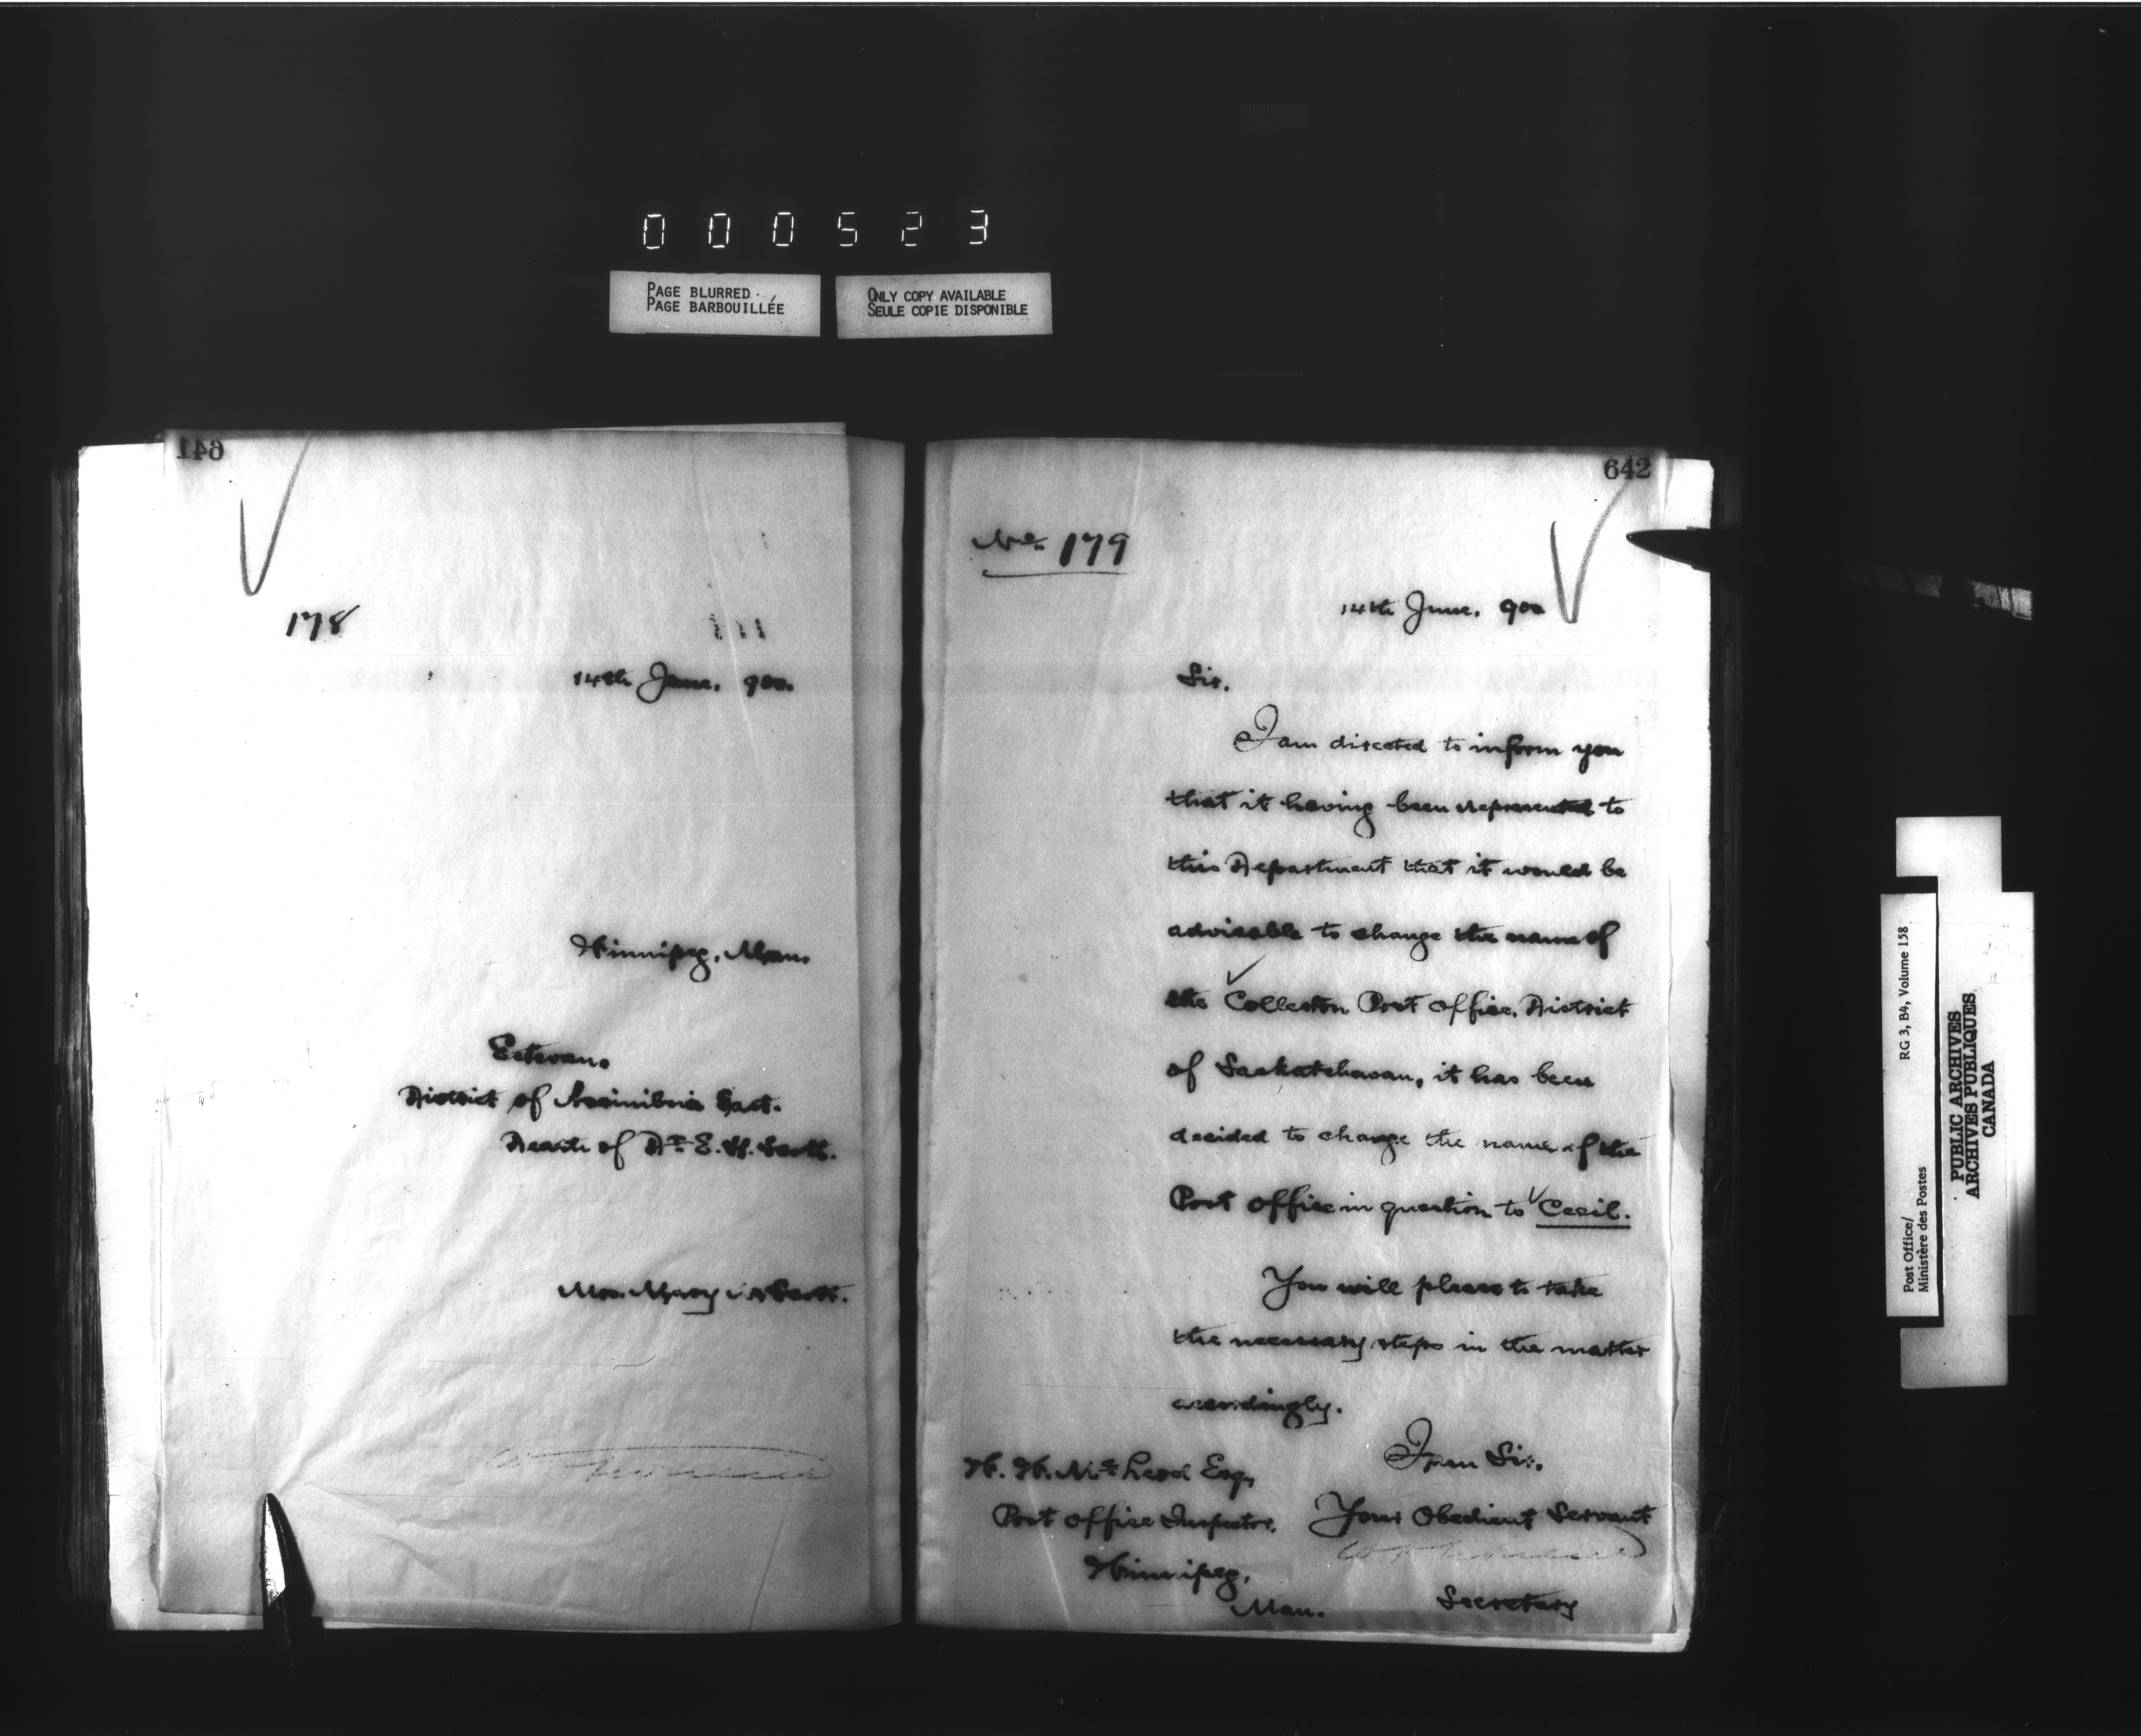 000523
PAGE BLURRED
PAGE BARBOUILLÉE
ONLY COPY AVAILABLE
SEULE COPIE DISPONIBLE
641
178
14th June, 900.
Winnipeg, Man.
Estevan.
District of Assiniboia East.
Death of Dr. E. H. Scott.
Mrs. Mary Scott.
642
No. 179
14th June, 900
Sir,
I am directed to inform you
that it having been represented to
this Department that it would be
advisable to change the name of
the Colleston Post Office, District
of Saskatchewan, it has been
decided to change the name of the
Post Office in question to Cecil.
You will please to take
the necessary steps in the matter
accordingly.
I am Sir,
Your Obedient Servant
Secretary
W. W. McLeod Esq,
Post Office Inspector,
Winnipeg,
Man.
Post Office/
Ministère des Postes
RG 3, B4, Volume 158
PUBLIC ARCHIVES
ARCHIVES PUBLIQUES
CANADA